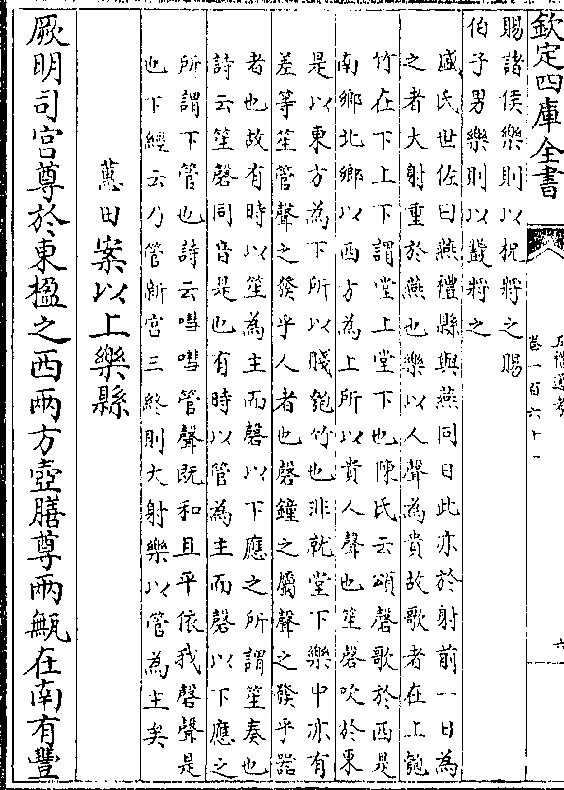 欽定四庫全書
五禮通考
卷一百六十一
六
賜諸侯樂則以柷將之賜
伯子男樂則以鼗將之
盛氏世佐曰燕禮縣與燕同日此亦於射前一日為
之者大射重於燕也樂以人聲為貴故歌者在上匏
竹在下上下謂堂上堂下也陳氏云頌磬歌於西是
南鄉北鄉以西方為上所以貴人聲也笙磬吹於東
是以東方為下所以賤匏竹也非就堂下樂中亦有
差等笙管聲之發乎人者也磬鐘之屬聲之發乎器
者也故有時以笙為主而磬以下應之所謂笙奏也
詩云笙磬同音是也有時以管為主而磬以下應之
所謂下管也詩云嘒嘒管聲既和且平依我磬聲是
也下經云乃管新宮三終則大射樂以管為主矣
蕙田案以上樂縣
厥明司宮尊於東楹之西兩方壺膳尊兩甒在南有豐